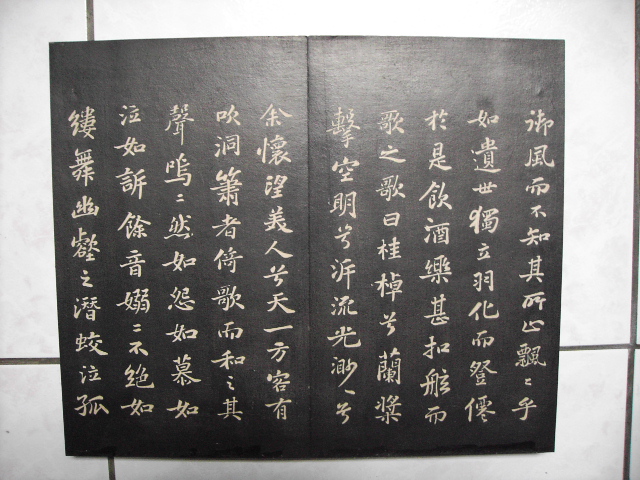 御風而不知其所止飄〻乎
如遺世獨立羽化而登僊
於是飲酒樂甚扣舷而
歌之歌曰桂棹兮蘭槳
擊空明兮泝流光渺〻兮
余懷望美人兮天一方客有
吹洞簫者倚歌而和之其
聲嗚〻然如怨如慕如
泣如訴餘音嫋〻不絕如
縷舞幽壑之潛蛟泣孤